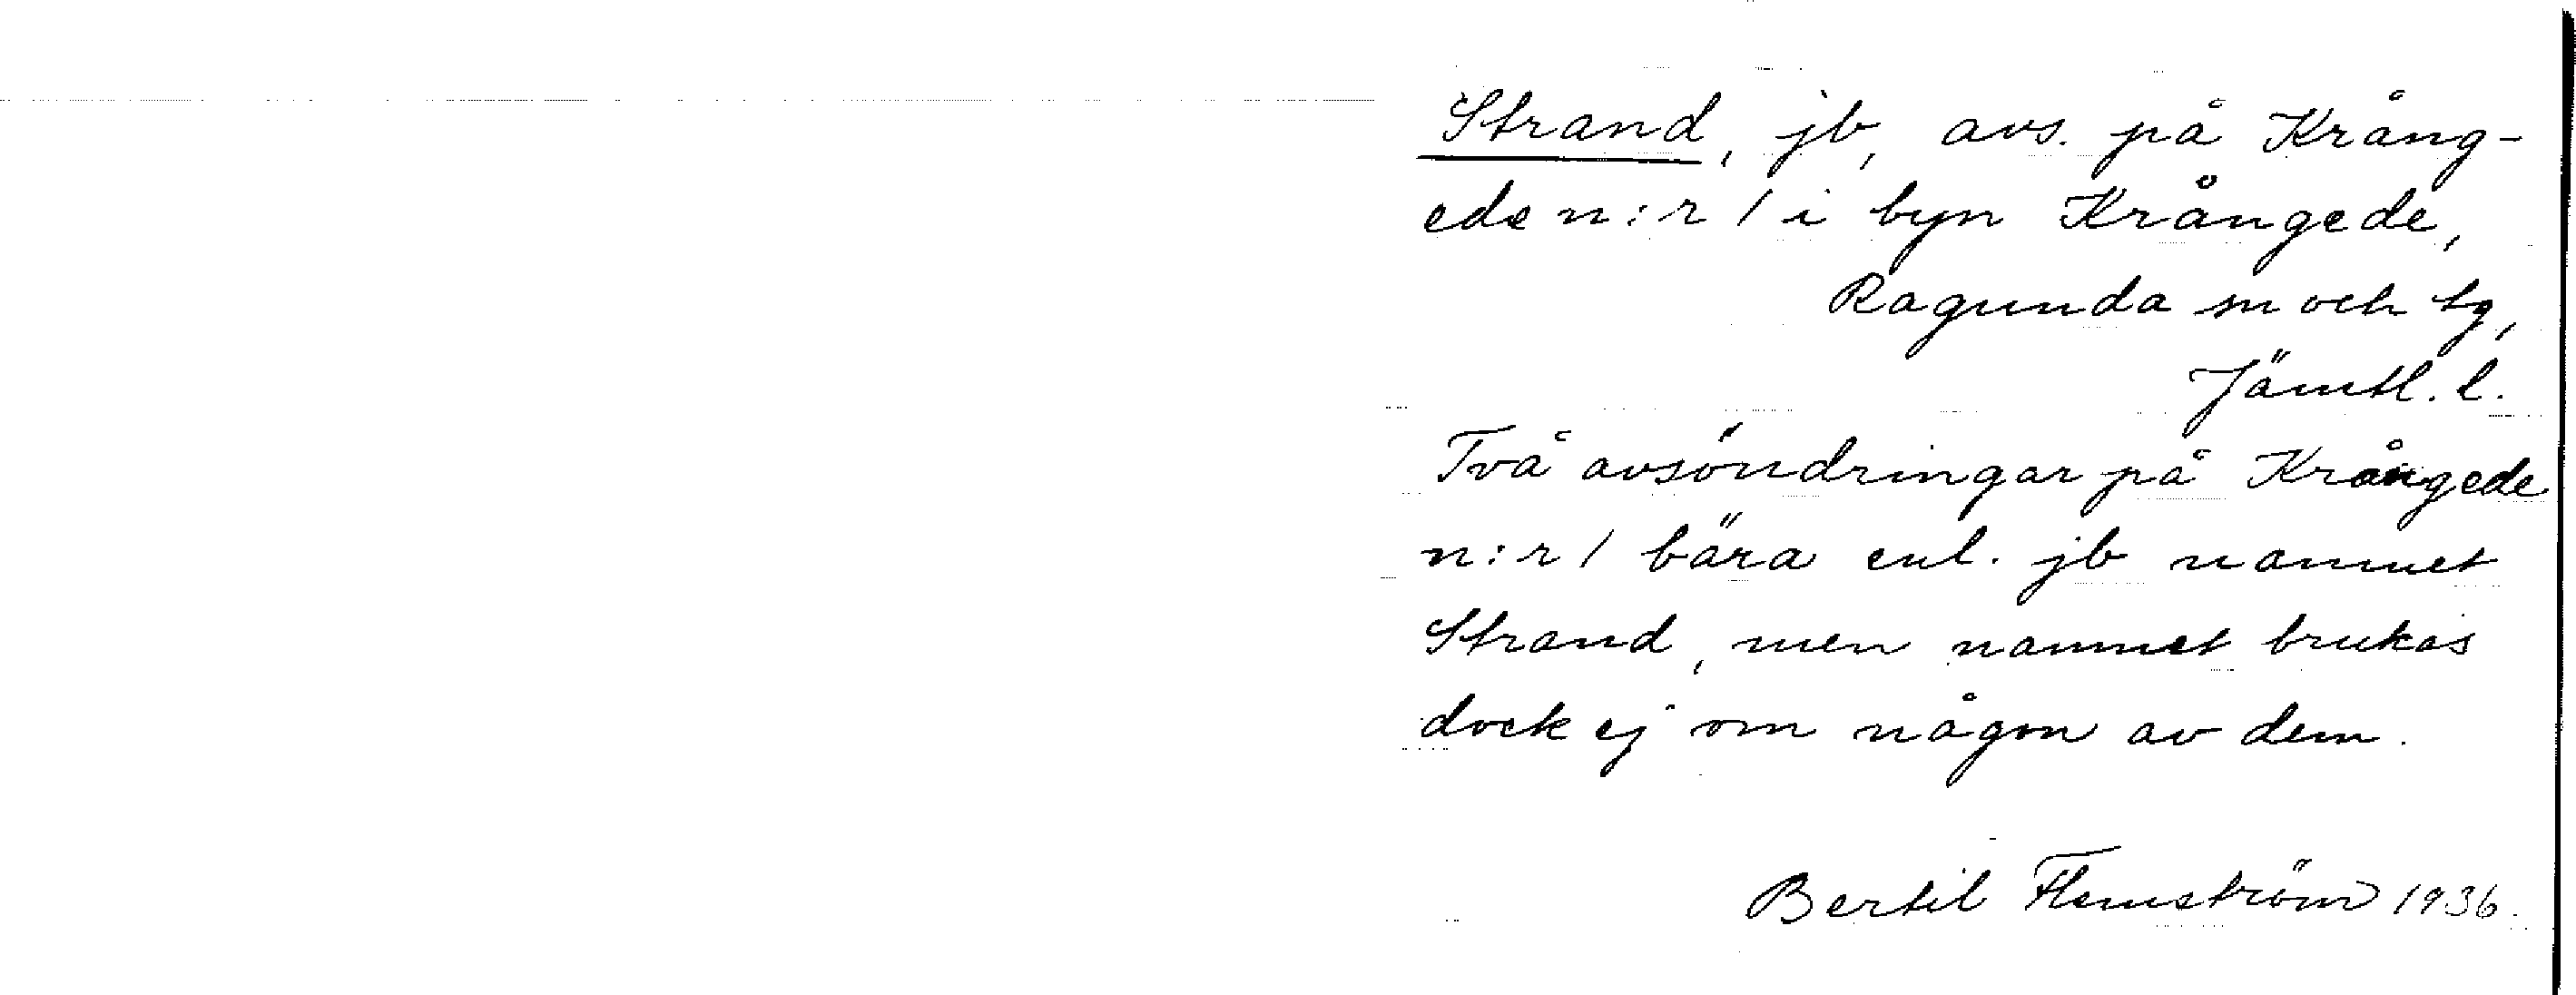 Strand, jb, avs. på Krång-
ede n:r 1 i byn Krångede,
Ragunda sn och tg,
Jämtl. l.
Två avsöndringar på Krångede
n:r 1 bära enl. jb namnet
Strand, men namnet brukas
dock ej om någon av dem.
Bertil Flemström 1936.